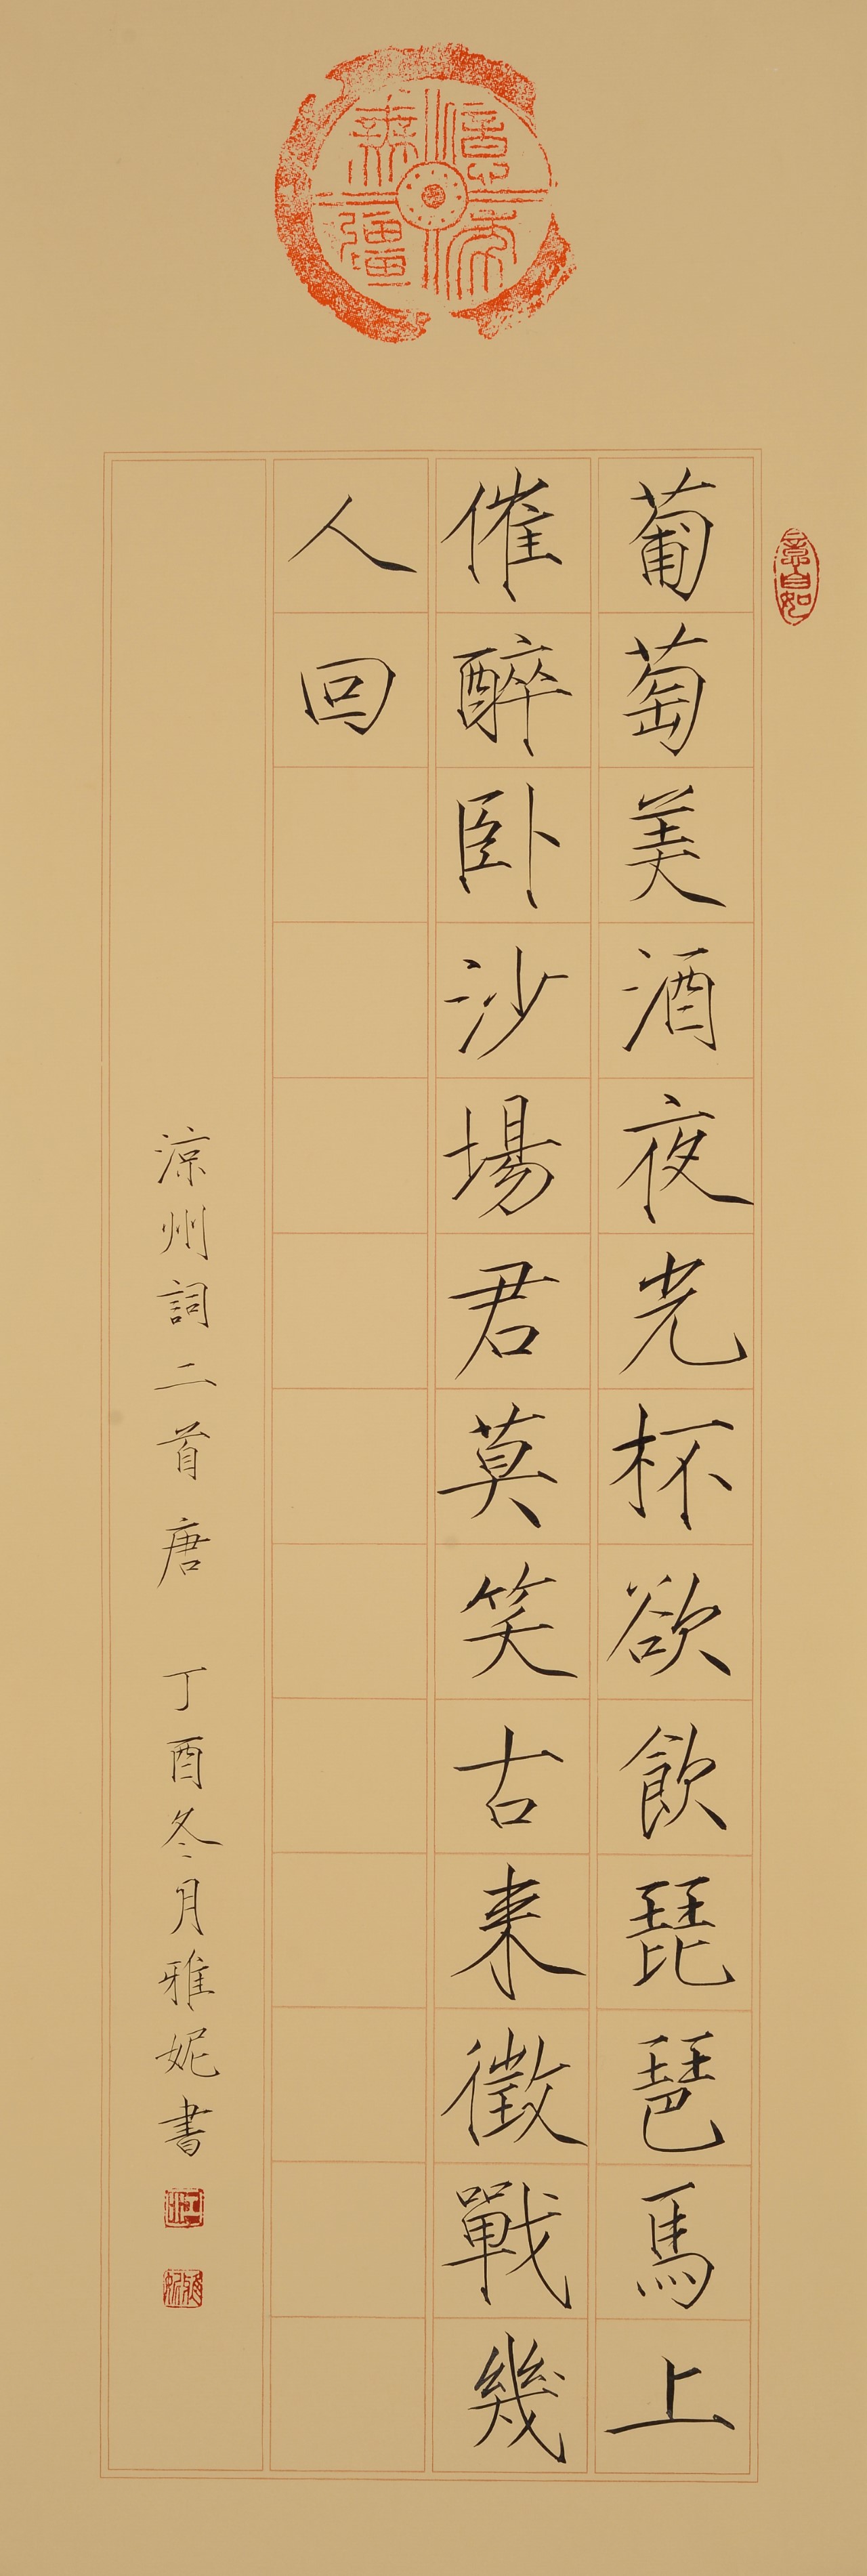 葡萄美酒夜光杯欲飲琵琶馬上
催醉卧沙場君莫笑古来徵戰幾
人回
涼州詞二首唐 丁酉冬月雅妮書
意自如